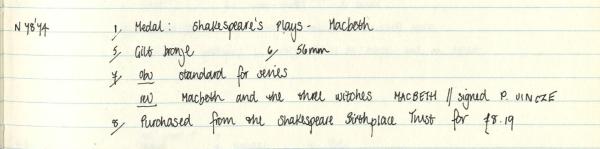 N48'44 1, Medal: Shakespeare's Plays - Macbeth
5, Gilt bronze 6, 56mm
7, obv standard for series
rev Macbeth and the three witches MACBETH // signed P. VINCZE
8, Purchased from the Shakespeare Birthplace Trust for £8.19